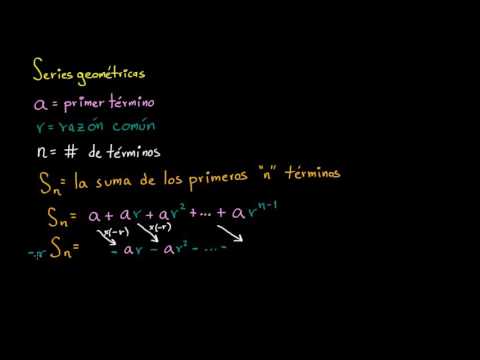 Series geométricas
a = primer término
r = razón común
n = # de términos
Sn = la suma de los primeros "n" términos
Sn = a + ar + ar² + ... + ar^(n-1)
x(-r) x(-r)
-r Sn = - ar - ar² - ... -